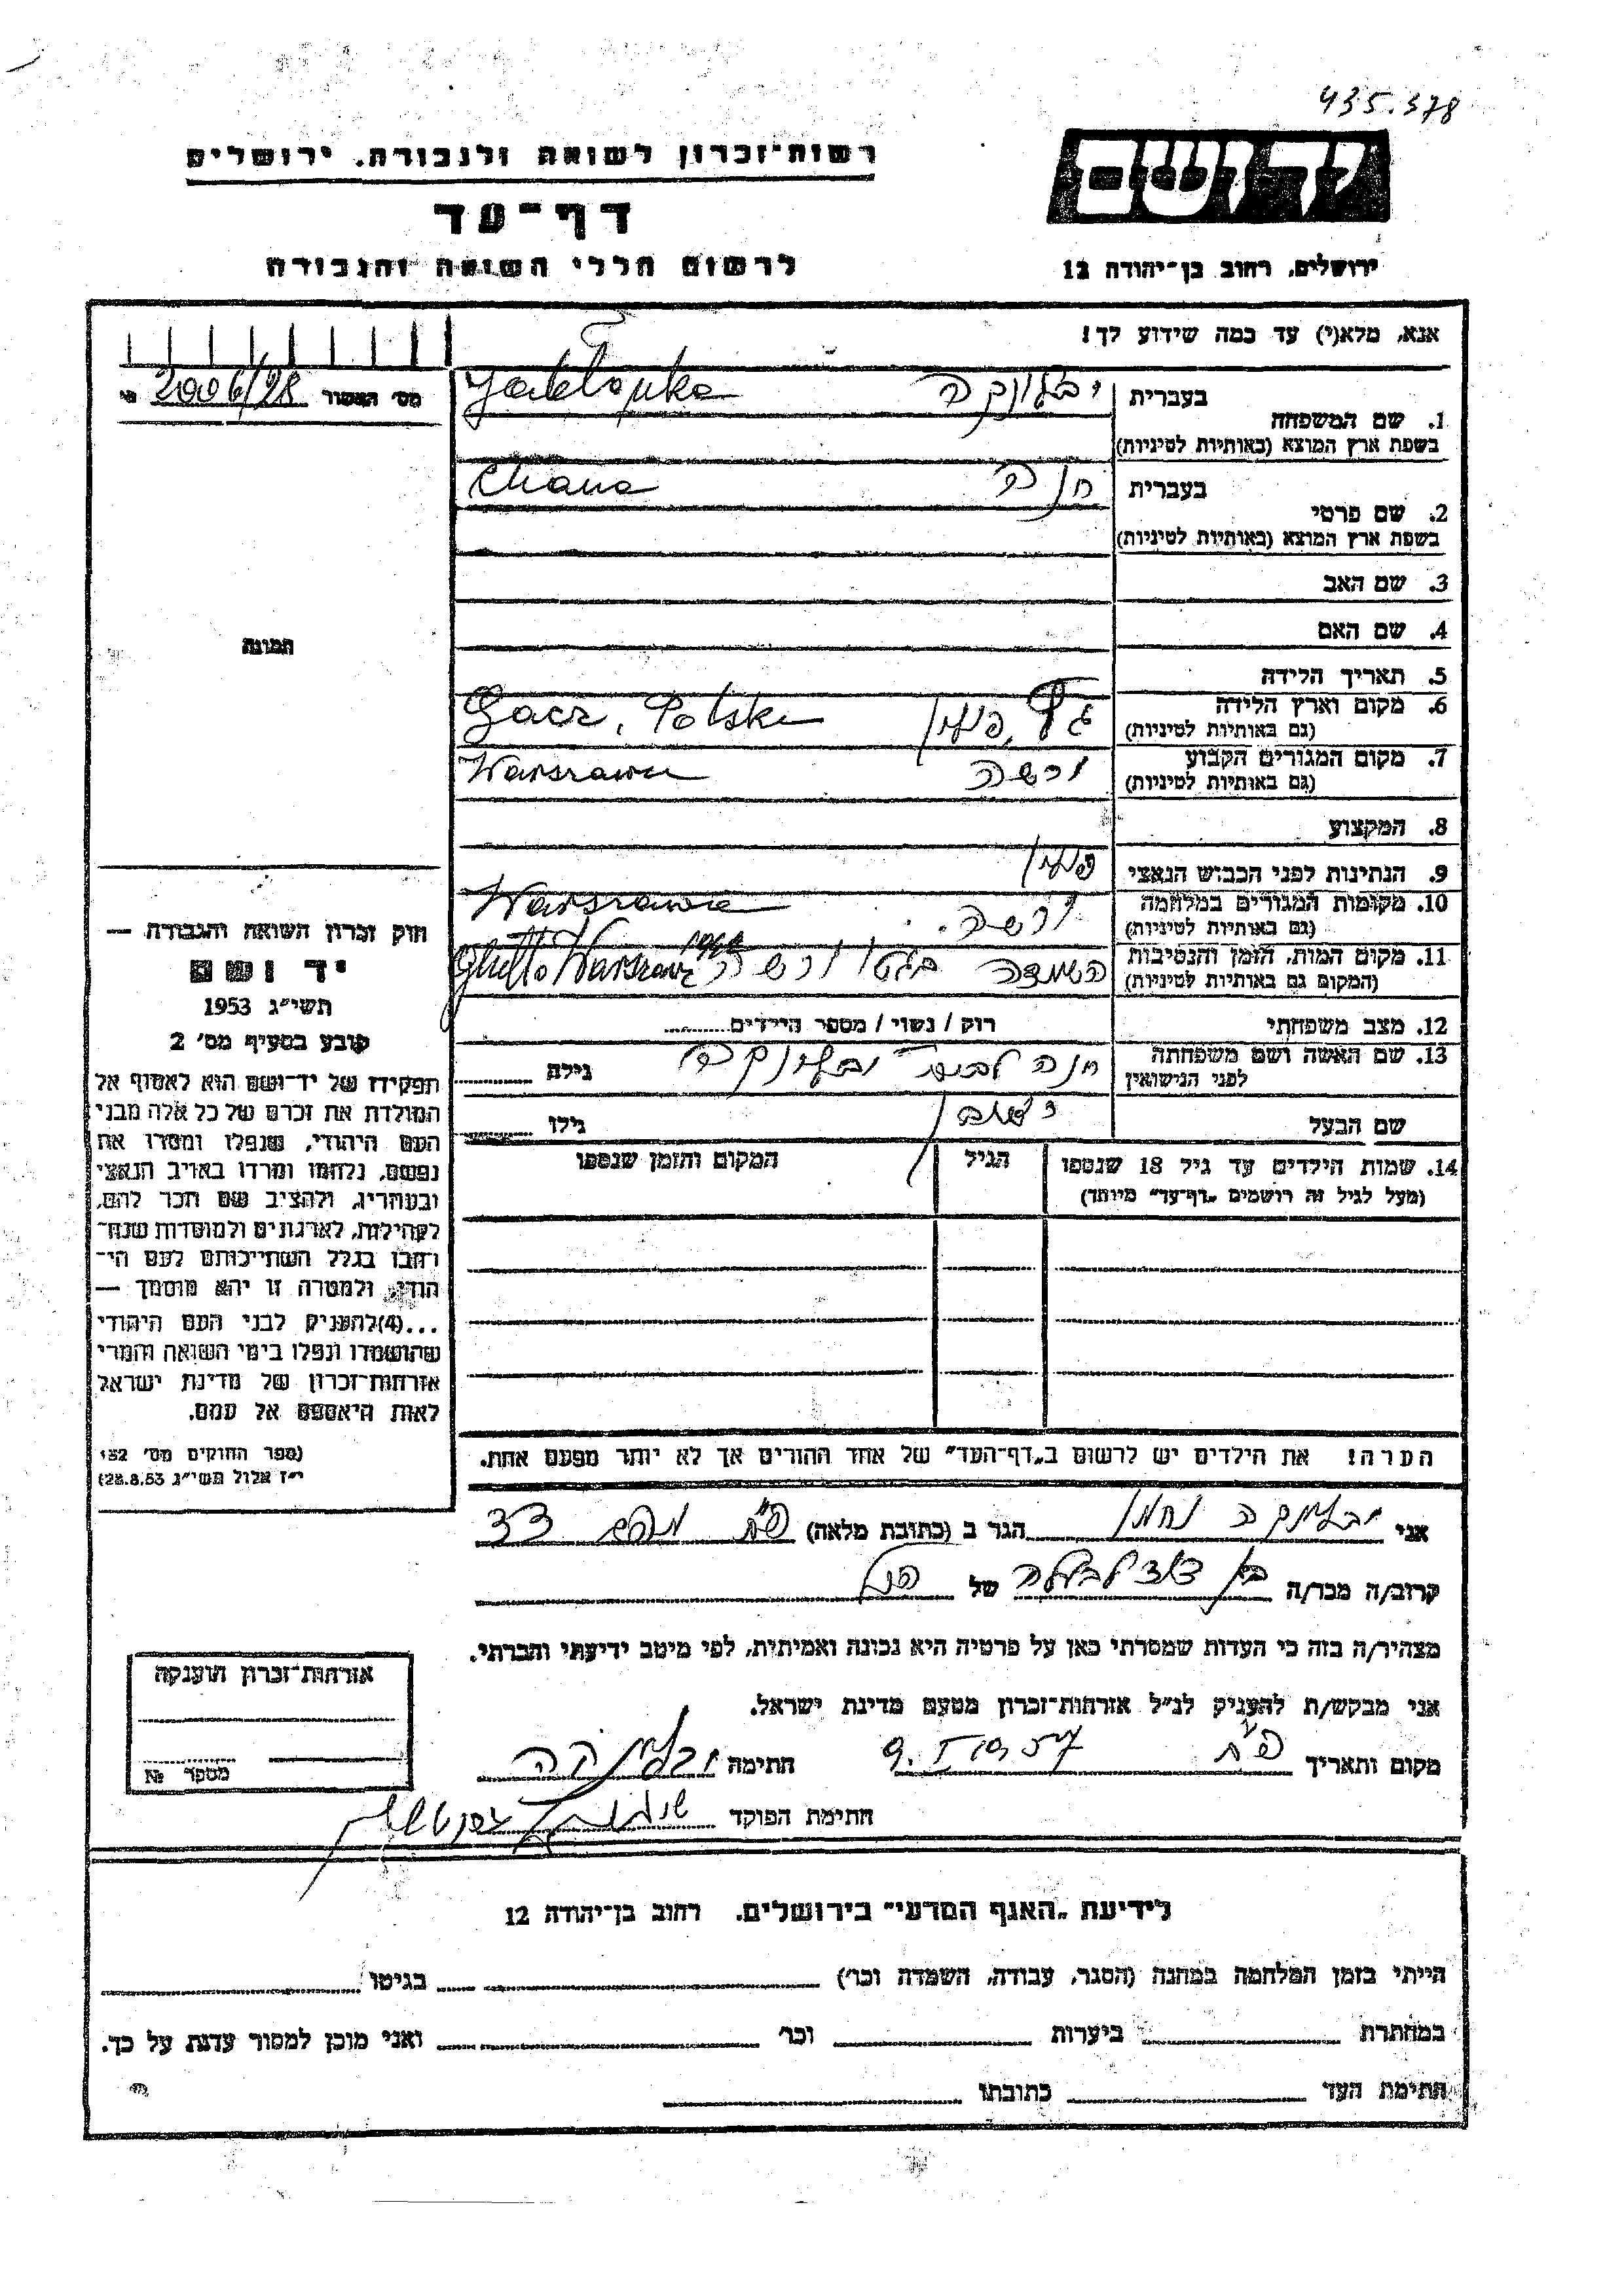 435.378
רשות־זכרון לשואה ולגבורה. ירושלים
יד ושם
דף־עד
לרשום חללי השואה והגבורה
ירושלים, רחוב בן־יהודה 12
אנא, מלא(י) עד כמה שידוע לך!
מס׳ האשור № 2006/28
1. שם המשפחה
בעברית יבלונקה
בשפת ארץ המוצא (באותיות לטיניות) Jabłonka
2. שם פרטי
בעברית חנה
בשפת ארץ המוצא (באותיות לטיניות) Chana
3. שם האב
4. שם האם
5. תאריך הלידה
6. מקום וארץ הלידה
(גם באותיות לטיניות) פולין Polska
7. מקום המגורים הקבוע ורשה Warszawa
(גם באותיות לטיניות)
8. המקצוע
9. הנתינות לפני הכבוש הנאצי פולין
10. מקומות המגורים במלחמה ורשה. Warszawa
(גם באותיות לטיניות)
11. מקום המות, הזמן והנסיבות הושמדה בגטו ורשה Ghetto Warszawa
(המקום גם באותיות לטיניות)
12. מצב משפחתי רוק / נשוי / מספר הילדים
13. שם האשה ושם משפחתה חנה יבלונקה גילה
לפני הנישואין
שם הבעל גילו
14. שמות הילדים עד גיל 18 שנספו הגיל המקום והזמן שנספו
(מעל לגיל זה רושמים „דף־עד״ מיוחד)
הערה! את הילדים יש לרשום ב„דף־העד״ של אחד ההורים אך לא יותר מפעם אחת.
תמונה
חוק זכרון השואה והגבורה —
יד ושם
תשי״ג 1953
קובע בסעיף מס׳ 2
תפקידו של יד־ושם הוא לאסוף אל
המולדת את זכרם של כל אלה מבני
העם היהודי, שנפלו ומסרו את
נפשם, נלחמו ומרדו באויב הנאצי
ובעוזריו, ולהציב שם וזכר להם,
לקהילות, לארגונים ולמוסדות שנח־
רבו בגלל השתייכותם לעם הי־
הודי, ולמטרה זו יהא מוסמך —
...(4)להעניק לבני העם היהודי
שהושמדו ונפלו בימי השואה והמרי
אזרחות־זכרון של מדינת ישראל
לאות היאספם אל עמם.
(ספר החוקים מס׳ 132
י״ז אלול תשי״ג 28.8.53)
אני יבלונקה נחמן הגר ב (כתובת מלאה) פ״ת
קרוב/ה מכר/ה בן דוד לבעלה של הנ״ל
מצהיר/ה בזה כי העדות שמסרתי כאן על פרטיה היא נכונה ואמיתית, לפי מיטב ידיעתי והכרתי.
אני מבקש/ת להעניק לנ״ל אזרחות־זכרון מטעם מדינת ישראל.
מקום ותאריך פ״ת 9.I 1957 חתימה יבלונקה
חתימת הפוקד
אזרחות־זכרון הוענקה
מספר №
לידיעת „האגף המדעי״ בירושלים. רחוב בן־יהודה 12
הייתי בזמן המלחמה במחנה (הסגר, עבודה, השמדה וכו׳) בגיטו
במחתרת ביערות וכו׳ ואני מוכן למסור עדות על כך.
חתימת העד כתובתו